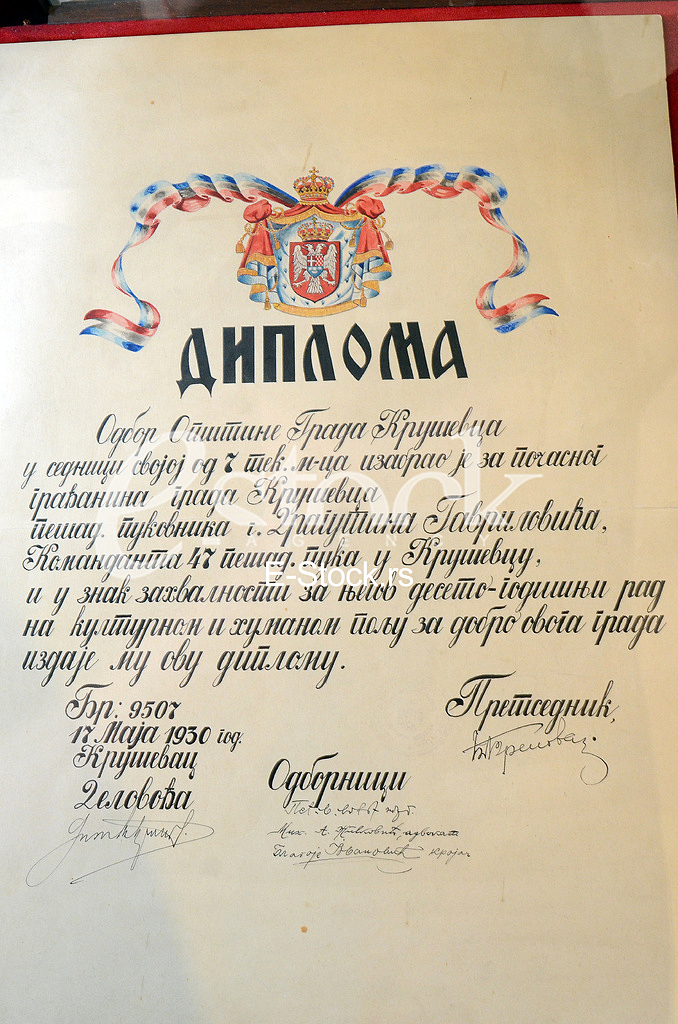 ДИПЛОМА
Одбор Општине Града Крушевца
у седници својој од 7 тек. м-ца изабрао је за почасног
грађанина града Крушевца
пешад. пуковника г. Драгутина Гавриловића,
Команданта 47 пешад. пука у Крушевцу,
и у знак захвалности за његов десето-годишњи рад
на културном и хуманом пољу за добро овога града
издаје му ову диплому.
Бр: 9507
17 Маја 1930 год.
Крушевац
Деловођа
Претседник,
Одборници
Мих. А. Живковић, адвокат
Благоје Јовановић кројач
estock
E-Stock.rs